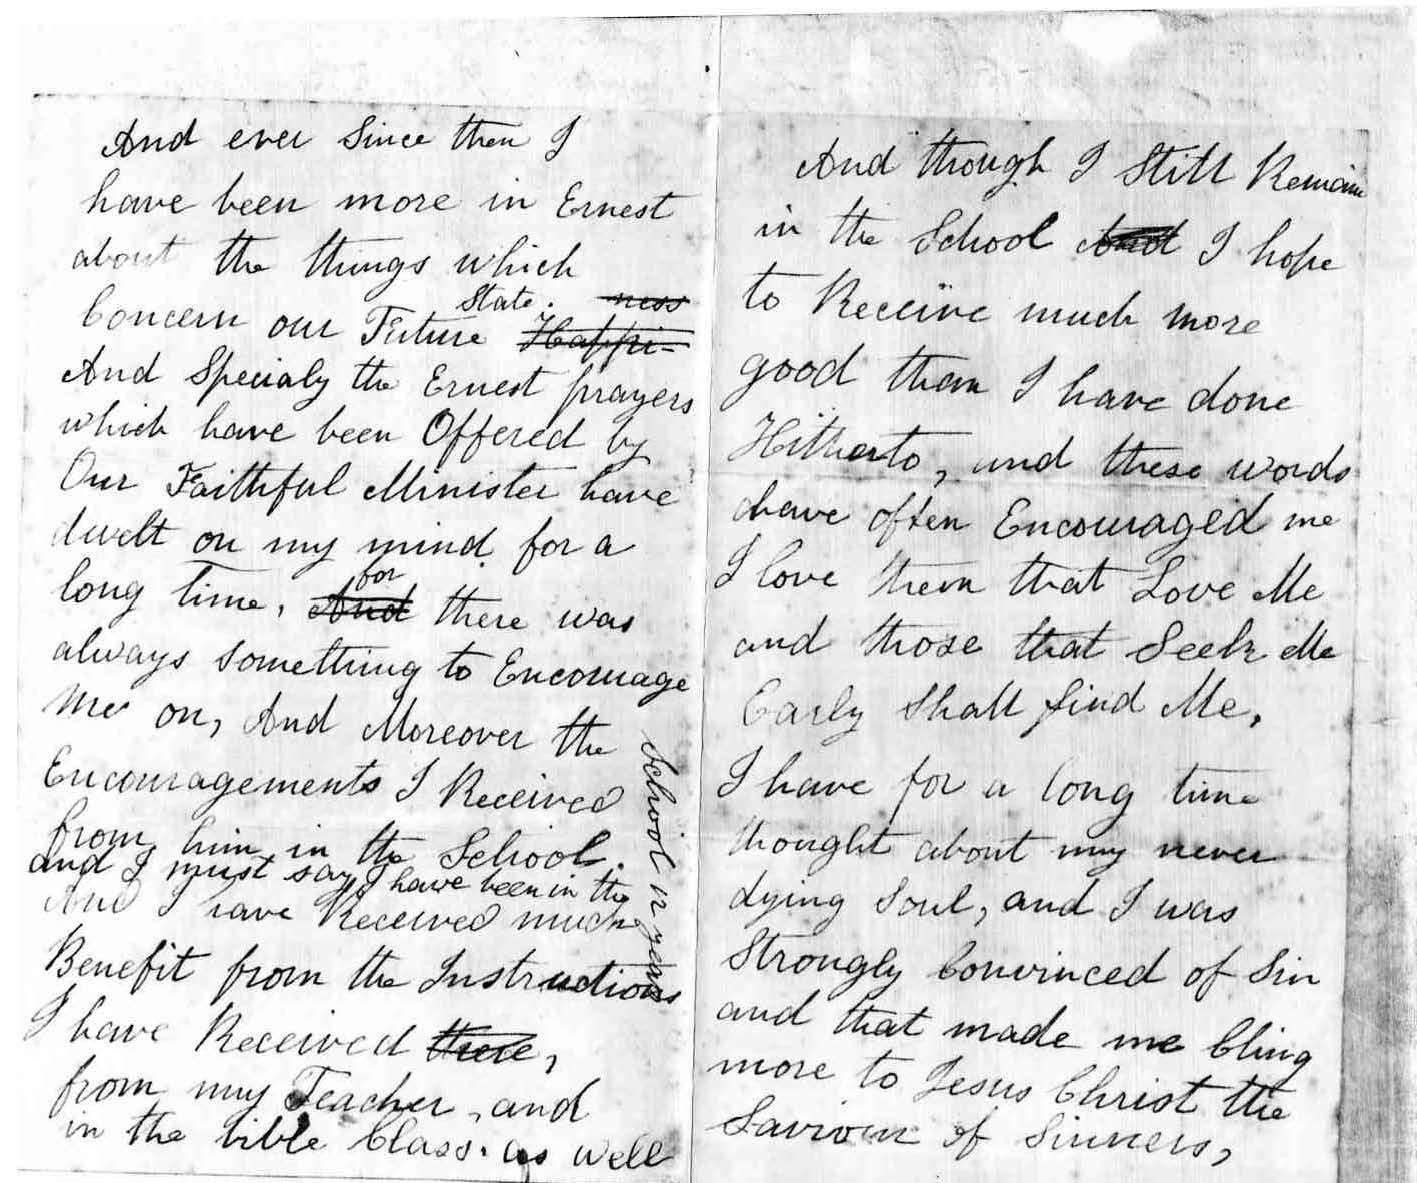 And ever Since then I
have been more in Ernest
about the things which
State. ness
Concern our Future Happi-
And Specialy the Ernest prayers
which have been Offered by
Our Faithful Minister have
dwelt on my mind for a
for
long time, And there was
always something to Encourage
Me on, And Moreover the
Encouragements I Received
from him in the School.
and I must say I have been in the
School 12 years
And I have Received much
Benefit from the Instructions
I have Received there,
from my Teacher, and
in the bible Class. as well
And though I Still Remain
in the School And I hope
to Receive much more
good than I have done
Hitherto, and these words
have often Encouraged me
I love them that Love Me
and those that Seek Me
Early Shall find Me,
I have for a long time
thought about my never
dying Soul, and I was
Strongly Convinced of Sin
and that made me Cling
more to Jesus Christ the
Saviour of Sinners,